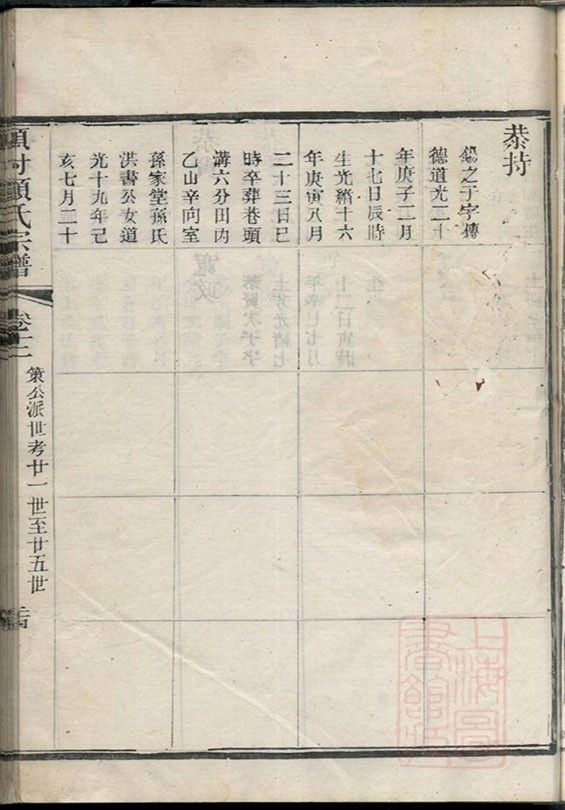 恭持
錫之子字傳
德道光二十
年庚子二月
十七日辰時
生光緒十六
年庚寅八月
二十三日巳
時卒葬巷頭
溝六分田內
乙山辛向室
孫家堂孫氏
洪書公女道
光十九年己
亥七月二十
顧氏宗譜
卷十二
策公派世考廿一世至廿五世
上海圖書館藏